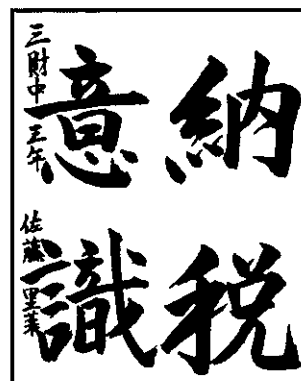 納税
意識
三財中 三年 佐藤里菜